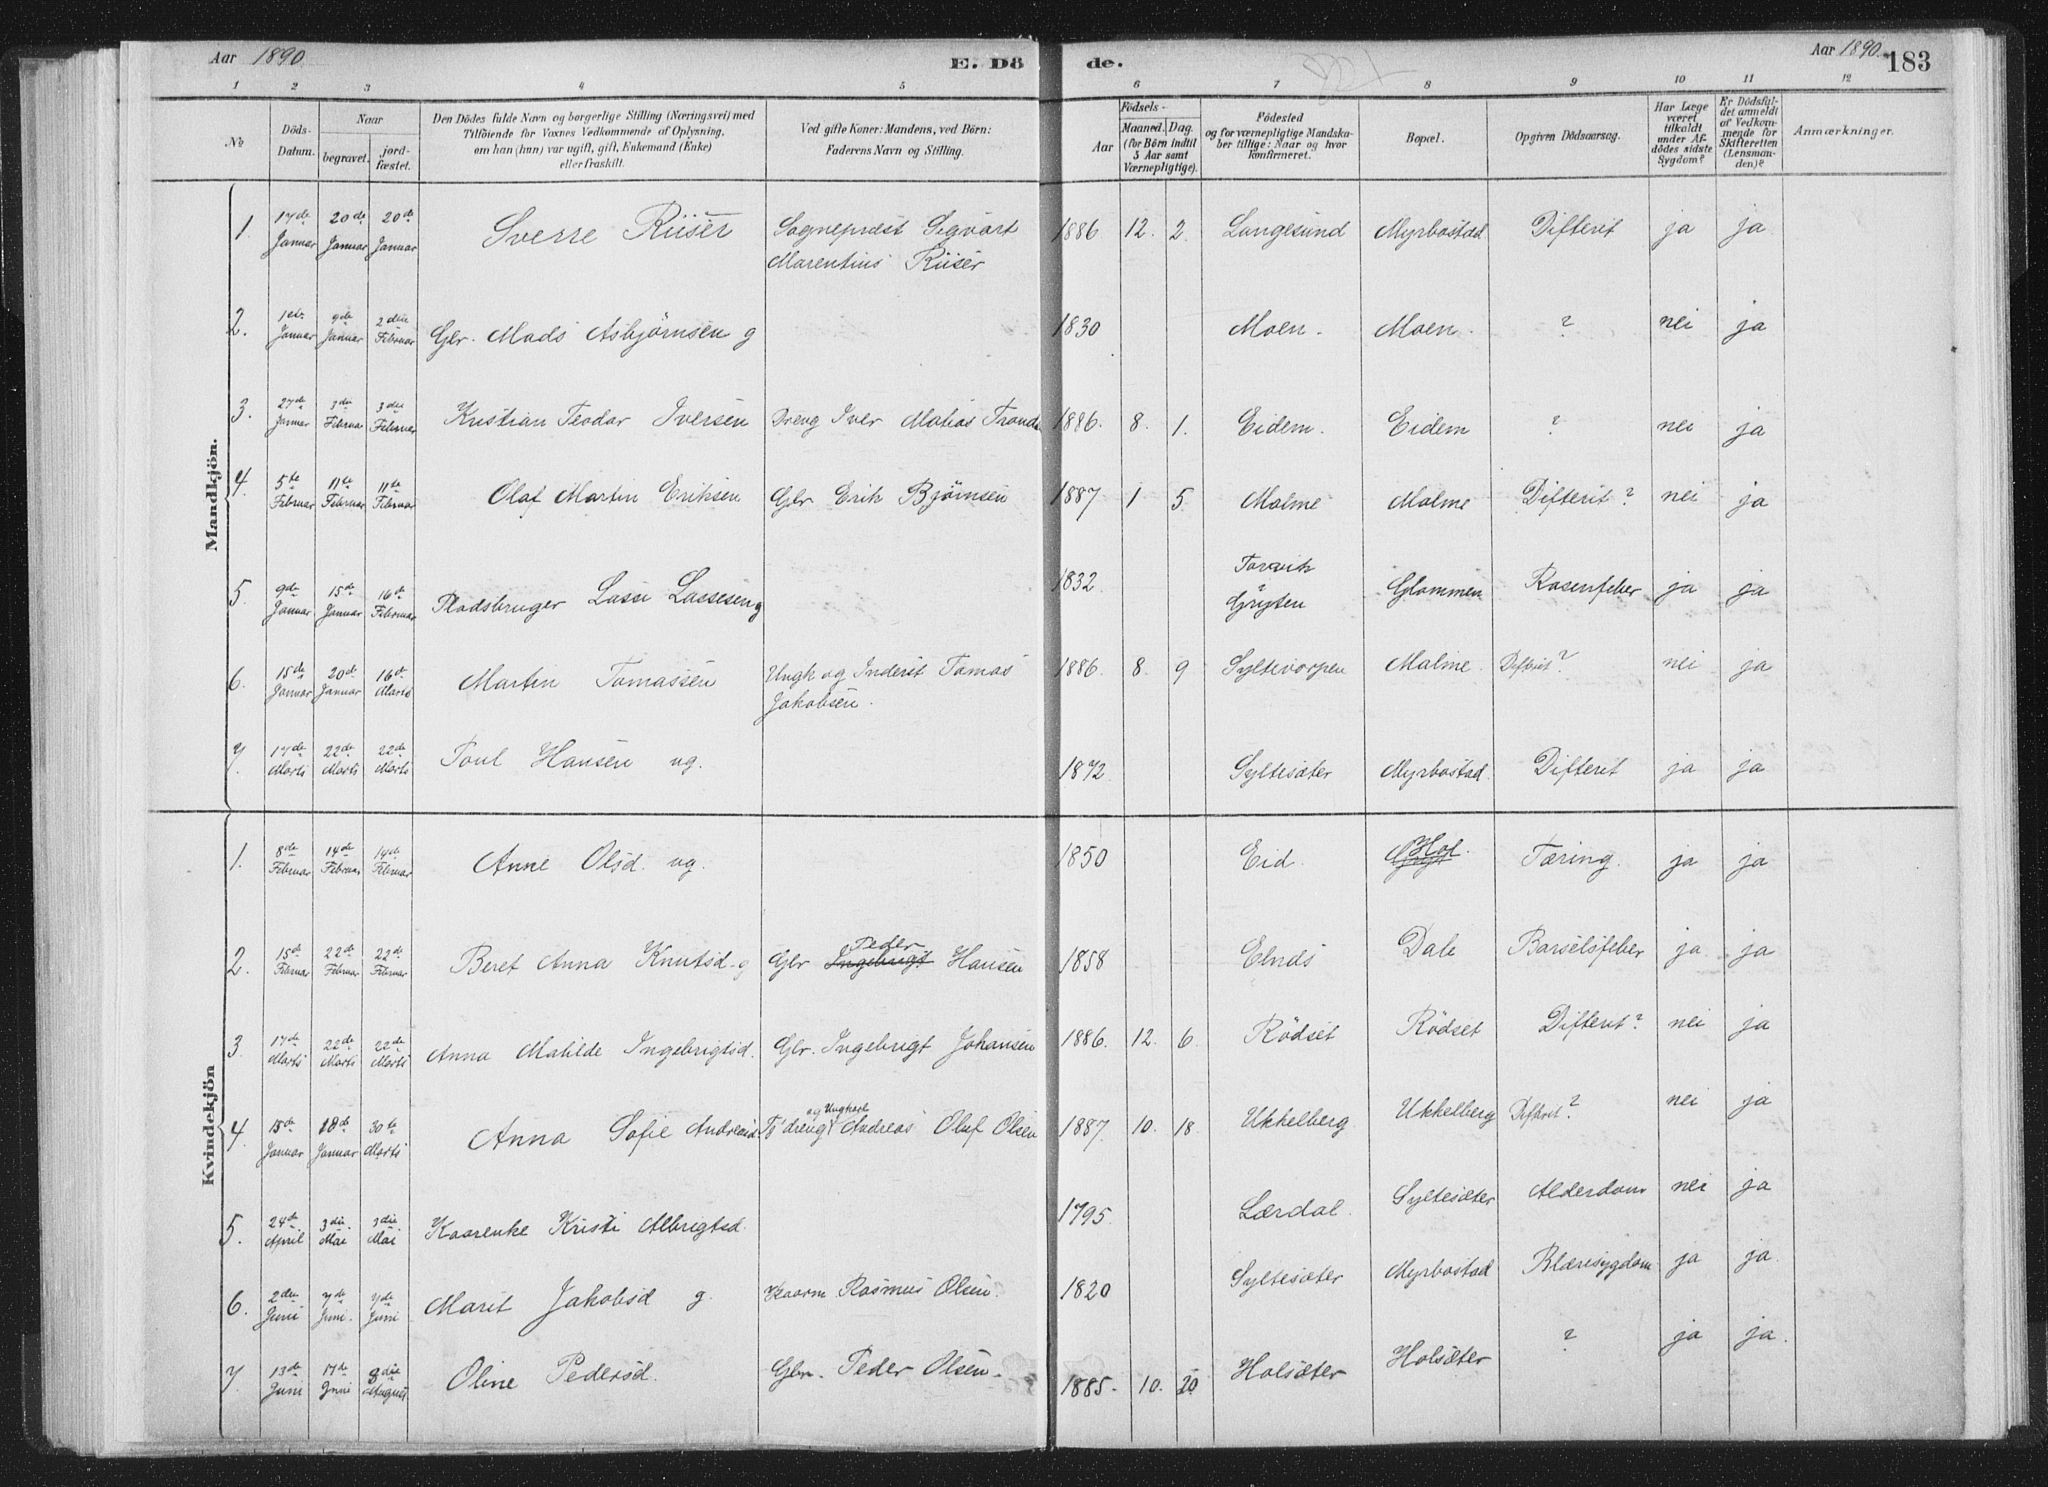 Aar 1890
E. Dö
de.
Aar 1890.
183
1 2 3 4 5 6 7 8 9 10 11 12
№
Döds-Datum.
Naar
begravet.
jord-fæstet.
Den Dödes fulde Navn og borgerlige Stilling (Næringsvei) med
Tilföiende for Voxnes Vedkommende af Oplysning,
om han (hun) var ugift, gift, Enkemand (Enke)
eller fraskilt.
Ved gifte Koner: Mandens, ved Börn:
Faderens Navn og Stilling.
Födsels-
Aar
Maaned. Dag.
(for Börn indtil
5 Aar samt
Værnepligtige).
Födested
og for værnepligtige Mandska-
ber tillige: Naar og hvor
konfirmeret.
Bopæl.
Opgiven Dödsaarsag.
Har Læge
været
tilkaldt
under Af-
dödes sidste
Sygdom?
Er Dödsfal-
det anmeldt
af Vedkom-
mende for
Skifteretten
(Lensman-
den)?
Anmærkninger.
Mandkjön.
1. 17de Januar 20de Januar 20de Januar Sverre Riiser Sogneprest Sigvart Marentius Riiser 1886 12. 2. Langesund Myrbostad Difterit ja ja.
2. 1ste Januar 9de Januar 2den Februar Gbr. Mads Asbjørnsen g 1830 Moen. Moen. ? nei ja
3. 27de Januar 3die Februar 3die Februar Kristian Teodor Iversen Dreng Iver Matias 1886. 8. 1. Eidem. Eidem ? nei ja
4. 5te Februar 11te Februar 11te Februar Olaf Martin Eriksen Gbr Erik Bjørnsen 1887 1 5. Malme Malme Difterit? nei ja
5. 9de Januar 15de Januar 16de Februar Pladsbruger Lasse Lassesen g 1832 Tarvik ? Gryten Glammen Rosenfeber ja ja
6. 15de Januar 20de Januar 16de Marts Martin Tomassen Ungk og Inderst Tomas Jakobsen. 1886. 8. 9 Syltevorpen Malme Difterit? nei ja
7. 17de Marts 22de Marts 22de Marts Poul Hansen ug. 1872 Syltesæter Myrbostad. Difterit ja ja
Kvindekjön
1. 8de Februar 14de Februar 14de Februar Anne Olsd. ug. 1850 Eid. Hol. Tæring. ja ja
2. 15de Februar 22de Februar 22de Februar Beret Anna Knutsd. g Gbr Ingebrigt Peder Hansen 1858 Elnds Dale Barselsfeber ja ja
3. 17de Marts 22de Marts 22de Marts Anna Matilde Ingebrigtsd. Gbr. Ingebrigt Johansen 1886. 12. 6. Rödset Rödset Difterit? nei ja
4. 15de Januar 18de Januar 30te Marts Anna Sofie Andreasd. Tj.dreng og Ungkarl Andreas Oluf Olsen 1887. 10. 18. Ukkelberg Ukkelberg Difterit? nei ja
5. 24de April 3die Mai 3die Mai Kaarenke Kristi Albrigtsd. 1795. Lærdal. Syltesæter Alderdom nei ja
6. 2den Juni 7de Juni. 7de Juni Marit Jakobsd g. Kaarm Rasmus Olsen. 1820 Syltesæter Myrbostad Blæresygdom ja ja.
7. 13de Juni 17de Juni 3die August Oline Pedersd. Gbr. Peder Olsen. 1885. 10. 20. Holsæter Holsæter ? ja ja.